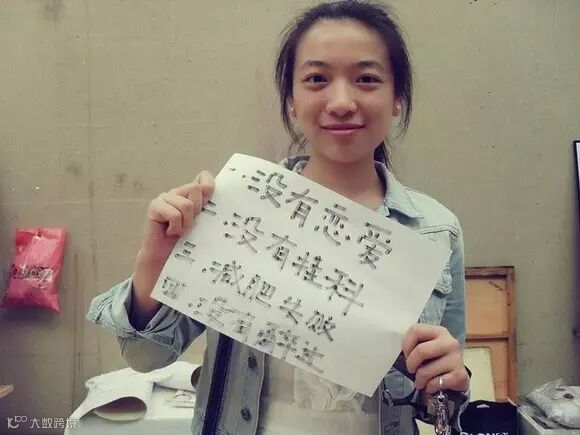 一.没有恋爱
二.没有挂科
三.减肥失败
四.没有醉过
大数跨境